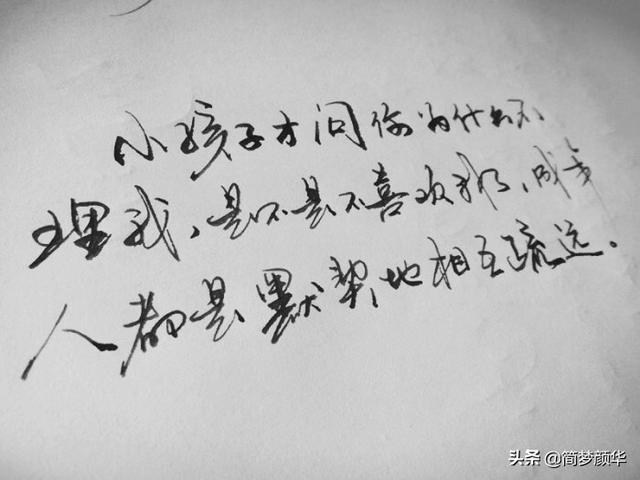 小孩子才问你为什么不
理我,是不是不喜欢我了,成年
人都是默契地相互疏远.
头条 @简梦颜华